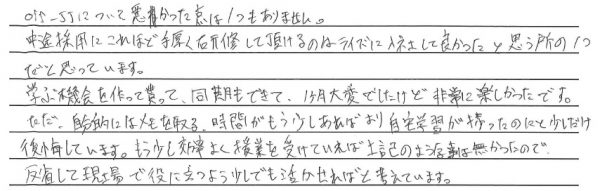 Off-JTについて悪かった点は1つもありません。
中途採用にこれほど手厚く研修して頂けるのはライズに入社して良かったと思う所の1つ
だと思っています。
学ぶ機会を作って貰って、同期もできて、1ヶ月大変でしたけど非常に楽しかったです。
ただ、的にはメモを取る時間がもう少しあればより自宅学習が捗ったのにと少しだけ
後悔しています。もう少し効率よく授業を受けていれば上記のような事は無かったので
反省して現場で役に立つよう少しでも活かせればと考えています。